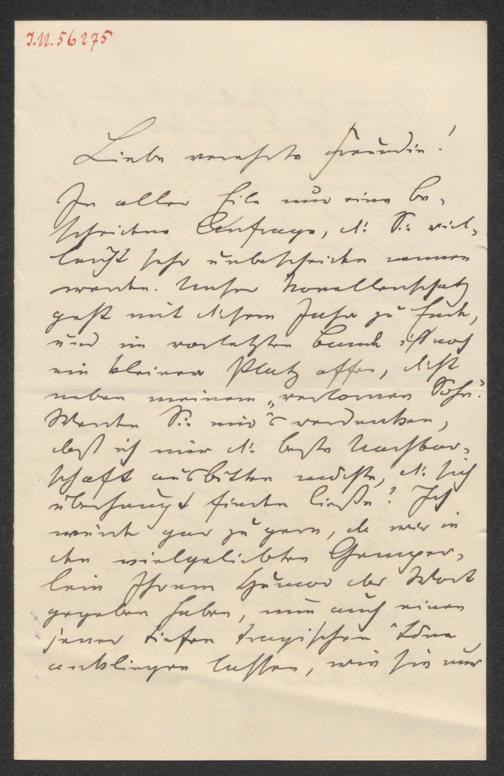 I.N. 56275
Liebe verehrte Freundin!
In aller Eile nur eine be-
scheidene Anfrage, die Sie viel-
leicht sehr unbescheiden nennen
werden. Unser Novellenschatz
geht mit diesem Jahr zu Ende,
und im vorletzten Bande ist noch
ein kleiner Platz offen, dicht
neben meinem „verlornen Sohn“.
Werden Sie mir's verdenken,
daß ich mir die beste Nachbar-
schaft ausbitten möchte, die sich
überhaupt finden ließe? Ich
würde gar zu gern, da wir in
den vielgeliebten Gemper-
lein Ihrem Humor das Wort
gegeben haben, nun auch einen
jener tiefen tragischen Töne
anklingen lassen, wie sie nur